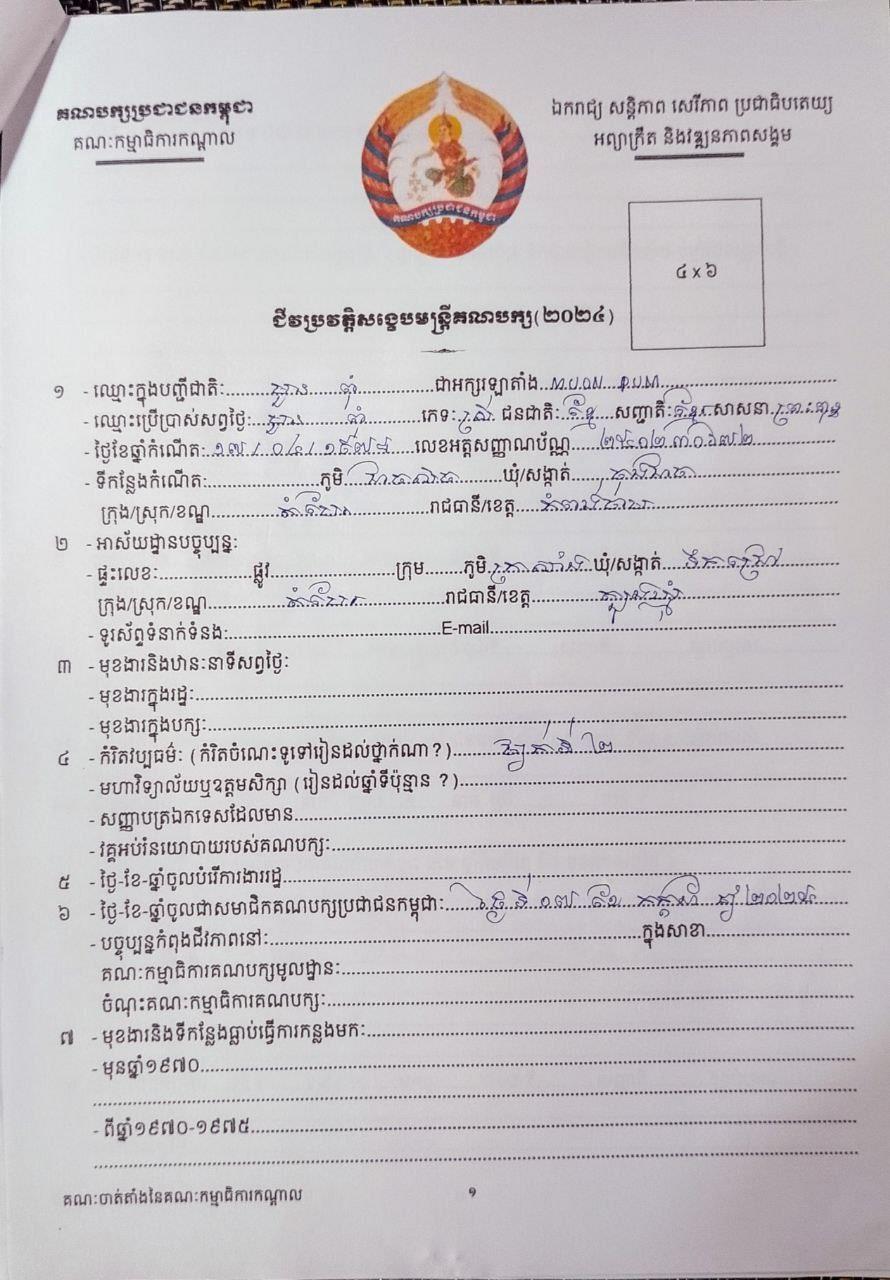 គណបក្សប្រជាជនកម្ពុជា
គណៈកម្មាធិការកណ្តាល
ឯករាជ្យ សន្តិភាព សេរីភាព ប្រជាធិបតេយ្យ
អព្យាក្រឹត និងវឌ្ឍនភាពសង្គម
គណបក្សប្រជាជនកម្ពុជា
៤ x ៦
ជីវប្រវត្តិសង្ខេបមន្ត្រីគណបក្ស(២០២៤)
១ - ឈ្មោះក្នុងបញ្ជីជាតិ: ជាអក្សរឡាតាំង
- ឈ្មោះប្រើប្រាស់សព្វថ្ងៃ: ភេទ: ស្រី ជនជាតិ: ខ្មែរ សញ្ជាតិ: ខ្មែរ សាសនា ព្រះពុទ្ធ
- ថ្ងៃខែឆ្នាំកំណើត: លេខអត្តសញ្ញាណប័ណ្ណ
- ទីកន្លែងកំណើត: ភូមិ ឃុំ/សង្កាត់
ក្រុង/ស្រុក/ខណ្ឌ រាជធានី/ខេត្ត
២ - អាស័យដ្ឋានបច្ចុប្បន្ន:
- ផ្ទះលេខ: ផ្លូវ ក្រុម ភូមិ ឃុំ/សង្កាត់
ក្រុង/ស្រុក/ខណ្ឌ រាជធានី/ខេត្ត ត្បូងឃ្មុំ
- ទូរស័ព្ទទំនាក់ទំនង: E-mail
៣ - មុខងារនិងឋានៈនាទីសព្វថ្ងៃ:
- មុខងារក្នុងរដ្ឋ:
- មុខងារក្នុងបក្ស:
៤ - កំរិតវប្បធម៌: (កំរិតចំណេះទូទៅរៀនដល់ថ្នាក់ណា?) ថ្នាក់ទី ២
- មហាវិទ្យាល័យឬឧត្តមសិក្សា (រៀនដល់ឆ្នាំទីប៉ុន្មាន ?)
- សញ្ញាបត្រឯកទេសដែលមាន
- វគ្គអប់រំនយោបាយរបស់គណបក្ស:
៥ - ថ្ងៃ-ខែ-ឆ្នាំចូលបំរើការងាររដ្ឋ
៦ - ថ្ងៃ-ខែ-ឆ្នាំចូលជាសមាជិកគណបក្សប្រជាជនកម្ពុជា: ថ្ងៃទី ១៧ ខែ កក្កដា ឆ្នាំ ២០២៥
- បច្ចុប្បន្នកំពុងជីវភាពនៅ: ក្នុងសាខា
គណៈកម្មាធិការគណបក្សមូលដ្ឋាន:
ចំណុះគណៈកម្មាធិការគណបក្ស:
៧ - មុខងារនិងទីកន្លែងធ្លាប់ធ្វើការកន្លងមក:
- មុនឆ្នាំ១៩៧០
- ពីឆ្នាំ១៩៧០-១៩៧៥
គណៈចាត់តាំងនៃគណៈកម្មាធិការកណ្តាល
១